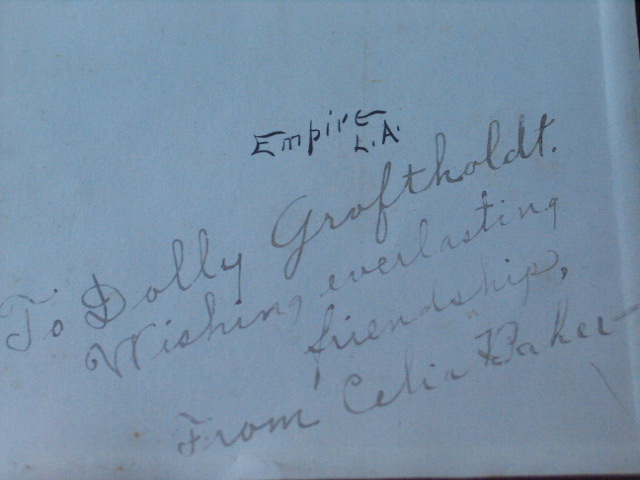 Empire
L.A.
To Dolly Groftholdt.
Wishing everlasting
friendship,
From Celia Baker